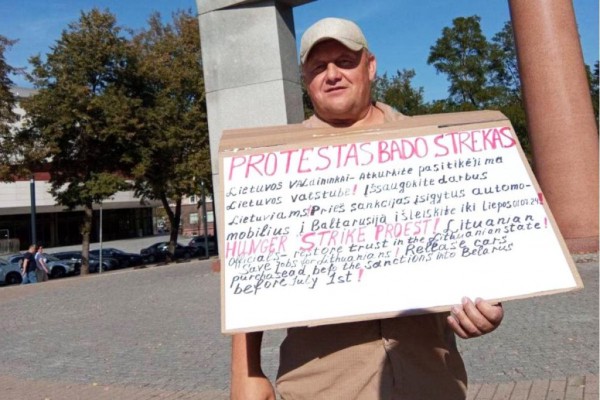 PROTESTAS BADO STREKAS
Lietuvos Valdininkai- Atkurkite pasitikėjima
Lietuvos valstube! Išsaugokite darbus
Lietuviams! Prieš sankcijas įsigytus automo-
mobilius į Baltarusiją išleiskite iki Liepos 01.07.24!
HUNGER STRIKE PROEST! Lituanian
Officials- restore trust in the Lithuanian state!
save jobs for Lithuanians! Release cars
purchasead before the sanctions into Belarus
before July 1st!